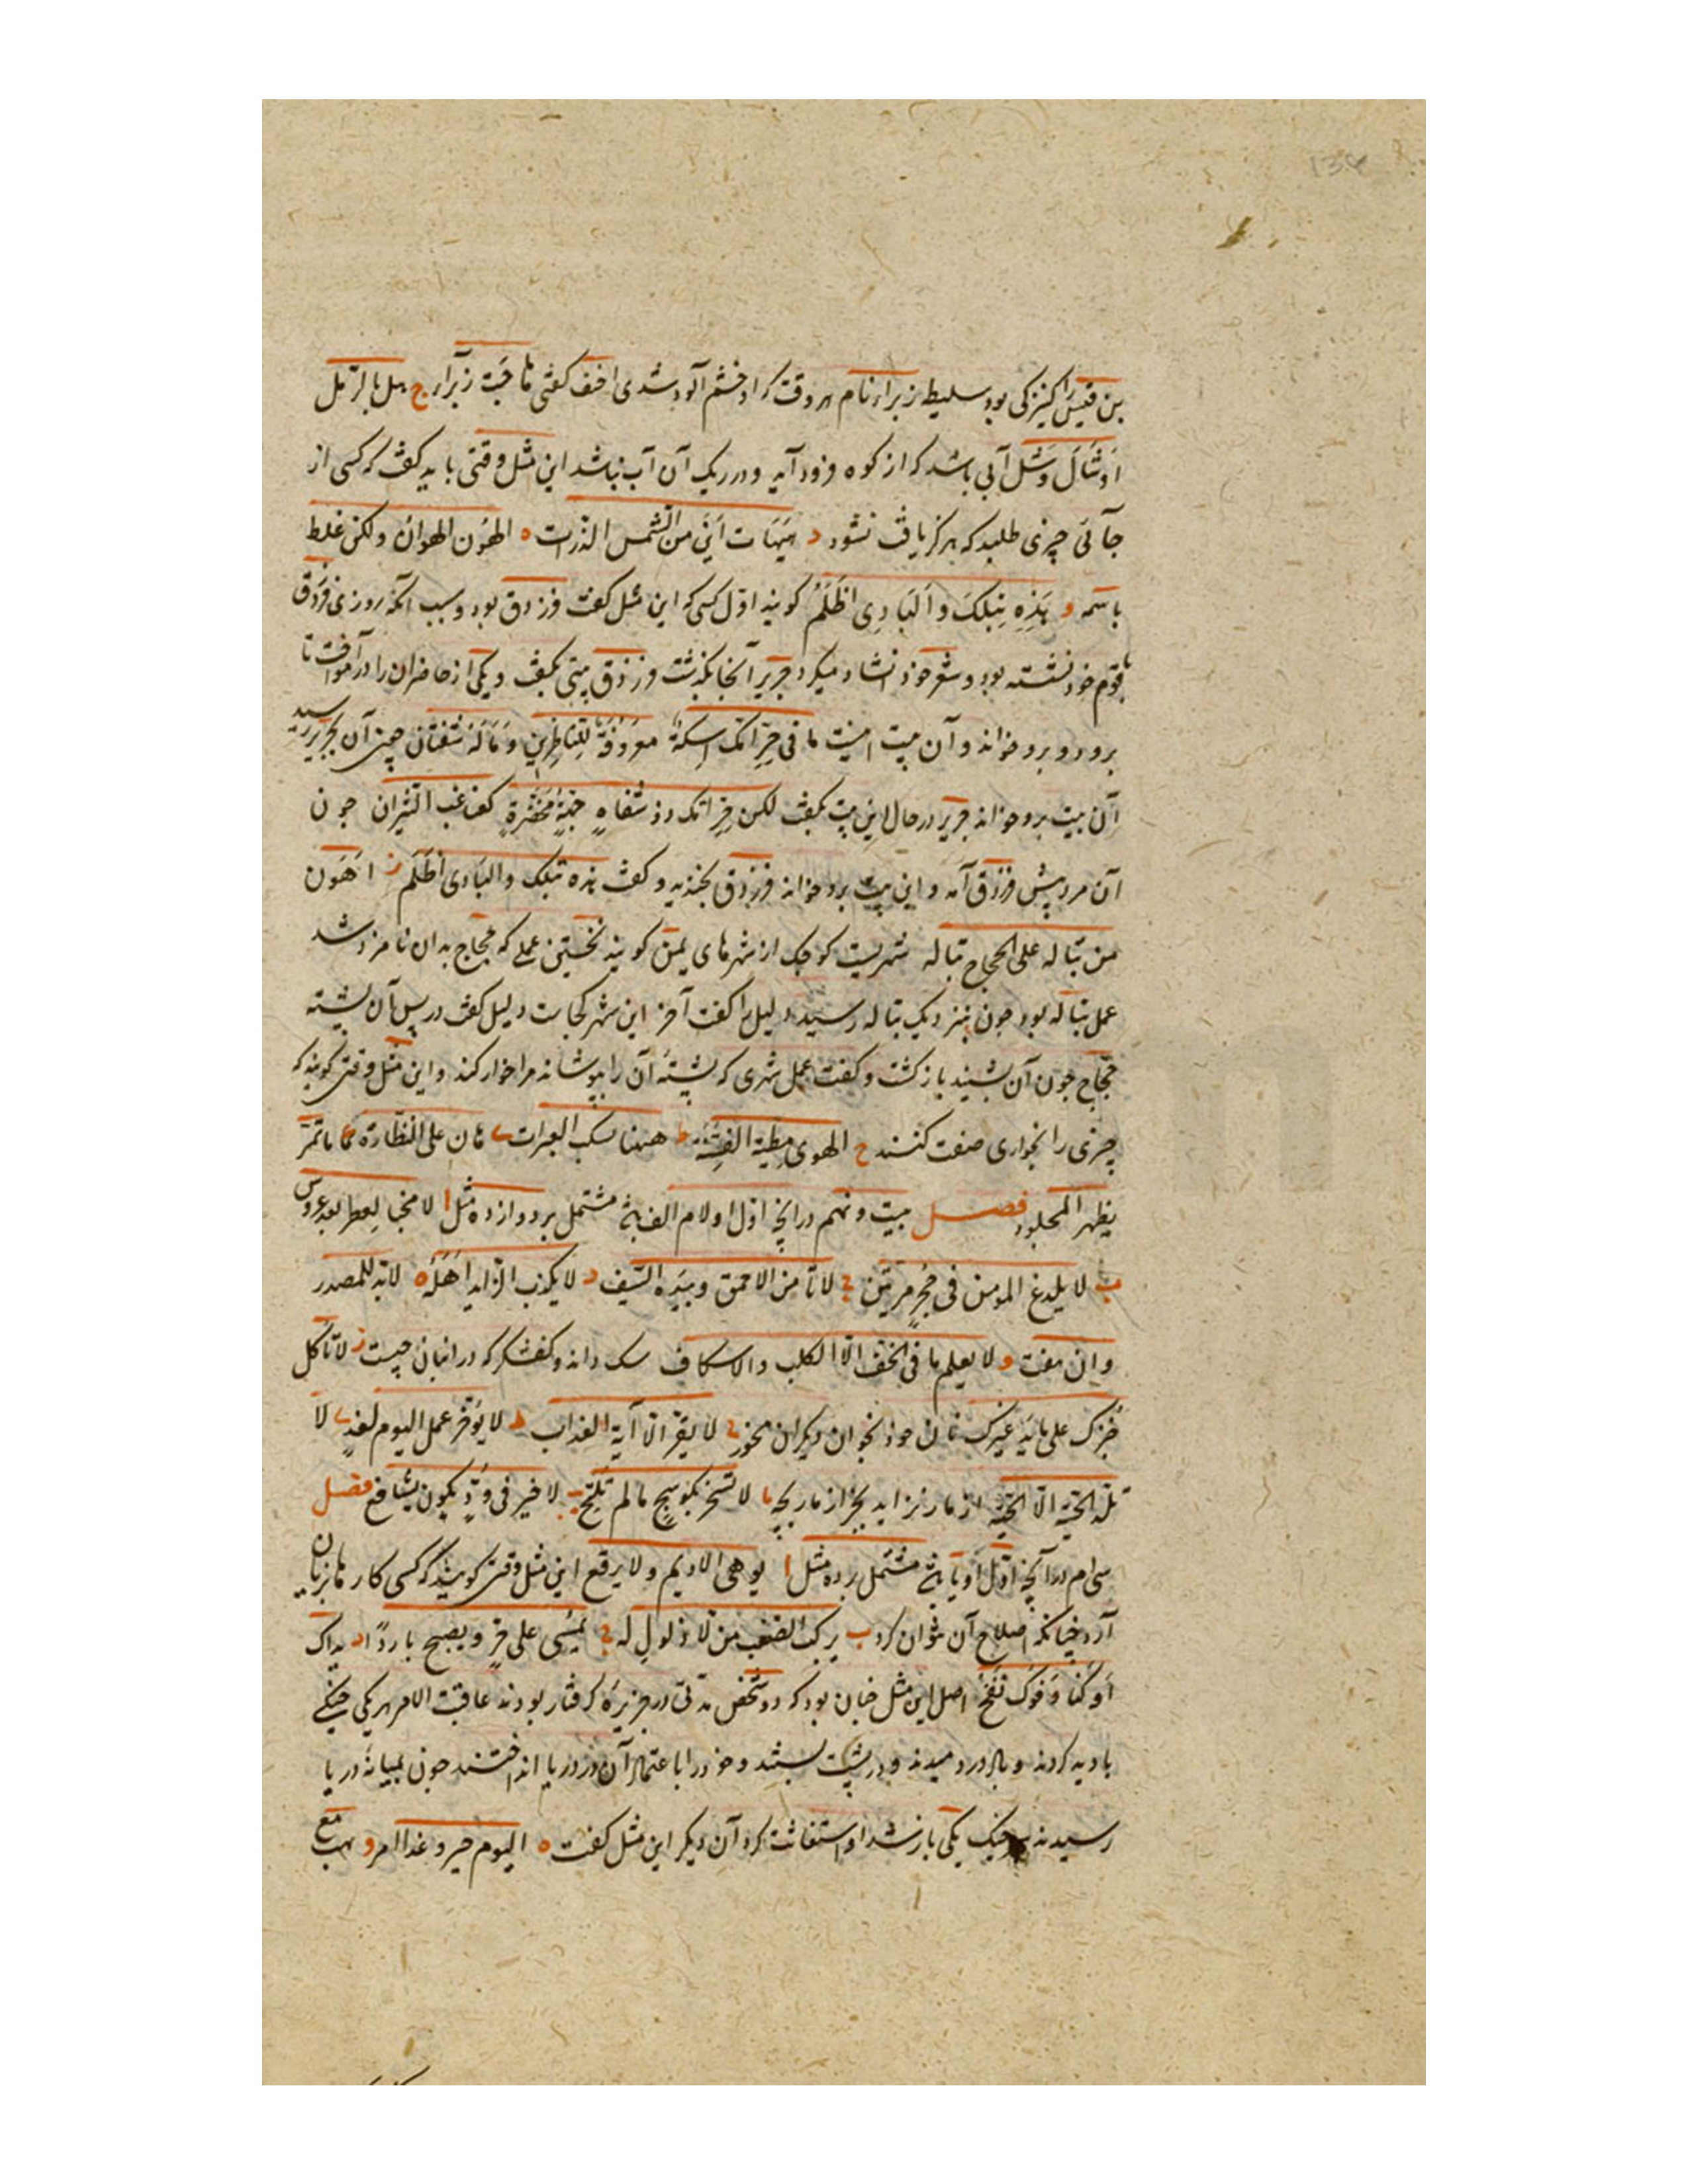 بن قیس را کنیزکی بود سلیطه زبراء نام هر وقت که او خشم آلود شدی احنف گفتی هاجت زبراء ج هل بالرمل
اوشال وشل آبی باشد که از کوه فرود آید و در ریک آن آب نباشد این مثل وقتی باید گفت که کسی از
جائی چیزی طلبد که هرگز یافت نشود د هیهات این من الشمس الذرات ه الهون الهوان ولکن غلط
باسمه و هذه بتلک و البادی اظلم گویند اول کسی که این مثل گفت فرزدق بود و سبب آنکه روزی فرزدق
با قوم خود نشسته بود و شعر خود انشاد میکرد جریر آنجا بگذشت فرزدق بیتی بگفت و یکی از حاضران را در آموخت تا
برود و برو خواند و آن بیت اینست ما فی حرامک اسکة معروفة للناظرین و ماله شفتان چون آن بجریر رسید
آن بیت برو خواند جریر در حال این بیت بگفت لکن حرامک ذو شفاه جمة مخضرة کغباغب الثیران چون
آن مرد پیش فرزدق آمد و این بیت برو خواند فرزدق بخندید و گفت هذه بتلک والبادی اظلم ز اهون
من تباله علی الحجاج تباله شهریست کوچک از شهرهای یمن گویند نخستین عملی که حجاج بدان نامزد شد
عمل تباله بود چون بنزدیک تباله رسید دلیل را گفت آخر این شهر کجاست دلیل گفت در پس آن پشته
حجاج چون آن بشنید بازگشت و گفت عمل شهری که پشتهٔ آن را بپوشاند مرا خوار کند و این مثل وقتی گویند که
چیزی را بخواری صفت کنند ح الهوی مطیة الفتنة ط ههنا تسکب العبرات ی هان علی النظارة ما یمر
بظهر المجلود فصل بیست و نهم در آنچه اول او لام الف باشد مشتمل بر دوازده مثل ا لا مخبا لعطر بعد عروس
ب لا یلدغ المومن فی جحر مرتین ج لا تامن الاحمق و بیده السیف د لا یکذب الراید اهله ه لابد للمصدور
وان نفث و لا یعلم ما فی الخف الا الکلب والاسکاف سک داند و کفشگر که در انبان چیست ز لا تاکل
خبزک علی مایدة غیرک نان خود بخوان دیگران مخور ح لا یقرأ الا آیة العذاب ط لا یوخر عمل الیوم لغد ی لا
تلد الحیة الا الحیة از مار نزاید بجز از مار بچه یا لا تسخر بکوسج ما لم تلتح یب لا خیر فی ود یکون بشافع فصل
سی‌ام در آنچه اول او یا باشد مشتمل بر ده مثل ا یوهی الادیم ولا یرقع این مثل وقتی گویند که کسی کارها بزیان
آرد چنانکه اصلاح آن نتوان کرد ب یرکب الصعب من لا ذلول له ج یمسی علی حر و یصبح باردا د یداک
اوکتا و فوک نفخ اصل این مثل چنان بود که دو شخص مدتی در جزیره گرفتار بودند عاقبت الامر هر یکی خیکی
بادید کردند و باد درو دمیدند و در پشت بستند و خود را با اعتماد آن در دریا انداختند چون بمیانه دریا
رسیدند سر خیک یکی باز شد او استغاثت کرد آن دیگر این مثل گفت ه الیوم خمر و غدا امر و یهب مع